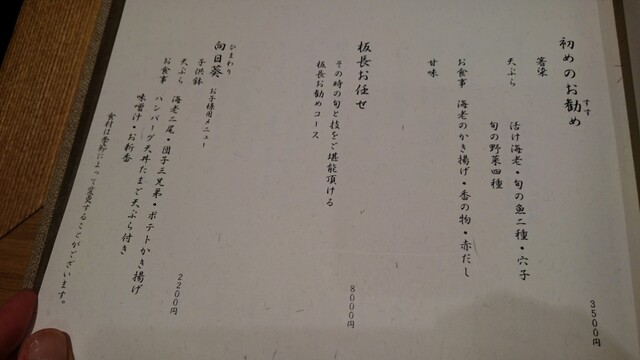 初めのお勧め
すす
箸染
天ぷら
活け海老・旬の魚二種・穴子
旬の野菜四種
お食事 海老のかき揚げ・香の物・赤だし
甘味
3500円
板長お任せ
その時の旬と技をご堪能頂ける
板長お勧めコース
8000円
ひまわり
向日葵 お子様用メニュー
子供鉢
天ぷら 海老二尾・団子三兄弟・ポテトかき揚げ
お食事 ハンバーグ天丼たまご天ぷら付き
味噌汁・お新香
2200円
食材は季節によって変更することがございます。